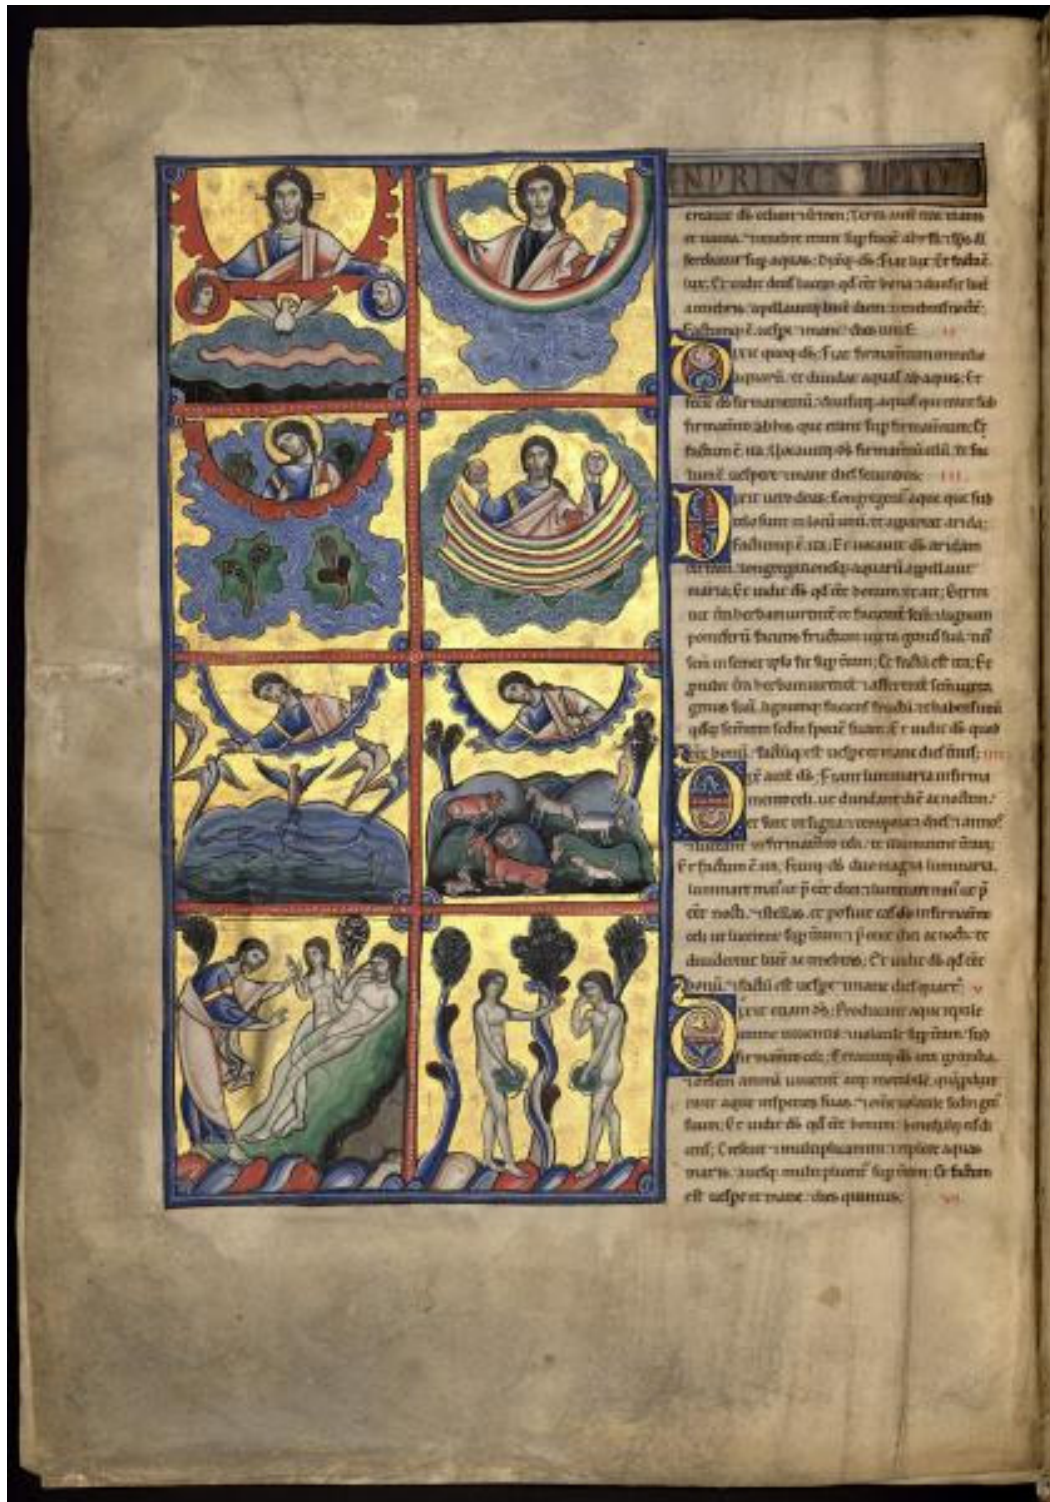 IN PRINCIPIO
creauit d̄s celum ⁊ t̄ram; Terra aut̄ erat inanis
et uacua. ⁊ tenebre erant sup faciē abyssi. ⁊ sp̄s dī
ferebatur sup aquas; Dixitq̇ d̄s. Fiat lux. Et facta ē
lux. Et uidit deus lucem qd̄ eēt bona ⁊ diuisit lucē
a tenebris. appellauitq̇ lucē diem ⁊ tenebras noctē.
Factumq̇ ē uesp̄e ⁊ mane dies unus. II
Dixit quoq̇ d̄s. Fiat firmamentum in medio
aquarū. et diuidat aquas ab aquis. Et
fecit d̄s firmamentū. diuisitq̇ aquas que erant sub
firmamto ab his que erant sup firmamtum; Et
factum ē ita. Uocauitq̇ d̄s firmamtū celū. et fac
tum ē uespere ⁊ mane dies secundus. III.
Dixit uero deus. Congregent̄ aque que sub
celo sunt in locū unū. et appareat arida;
Factumq̇ ē ita; Et uocauit d̄s aridam
terram. congregationesq̇ aquarū appellauit
maria; Et uidit d̄s qd̄ eēt bonum. et ait; Germi
net t̄ra herbam uirentē et facientē sem̄. ⁊ lignum
pomiferū faciens fructum iuxta genus suū. cui
sem̄ in semet ipso sit sup t̄ram; Et factū est ita; Et
genus suū. lignumq̇ faciens fructū. et habens unū
eēt bonū. factūq̇ est uespe et mane dies t̄cius; IIII
aut̄ d̄s; Fiant luminaria in firma
mento celi. ut diuidant diē ac noctem.
et sint in signa ⁊ tempora ⁊ dies ⁊ annos
ut luceant in firmamto celi. et illuminent t̄ram;
Et factum ē ita. Fecitq̇ d̄s duo magna luminaria.
luminare maius ut p̄eēt diei ⁊ luminare minus ut p̄
eēt nocti. ⁊ stellas. et posuit eas d̄s in firmamto
celi ut lucerent sup t̄ram ⁊ p̄eent diei ac nocti. et
diuiderent lucē ac tenebras; Et uidit d̄s qd̄ eēt
bonū. ⁊ factū est uespe ⁊ mane dies quartus. V
Dixit etiam d̄s; Producant aque reptile
anime uiuentis ⁊ uolatile sup t̄ram. sub
firmamto celi; Creauitq̇ d̄s cete grandia.
⁊ omem animā uiuentē atq̇ motabilē. quā produx
erant aque in species suas. ⁊ ome uolatile scd̄m gen̄
suum; Et uidit d̄s qd̄ eēt bonum. benedixitq̇ eis di
cens; Crescite ⁊ multiplicamini ⁊ replete aquas
maris. auesq̇ multiplicent̄ sup t̄ram; Et factum
est uespe et mane. dies quintus. VI